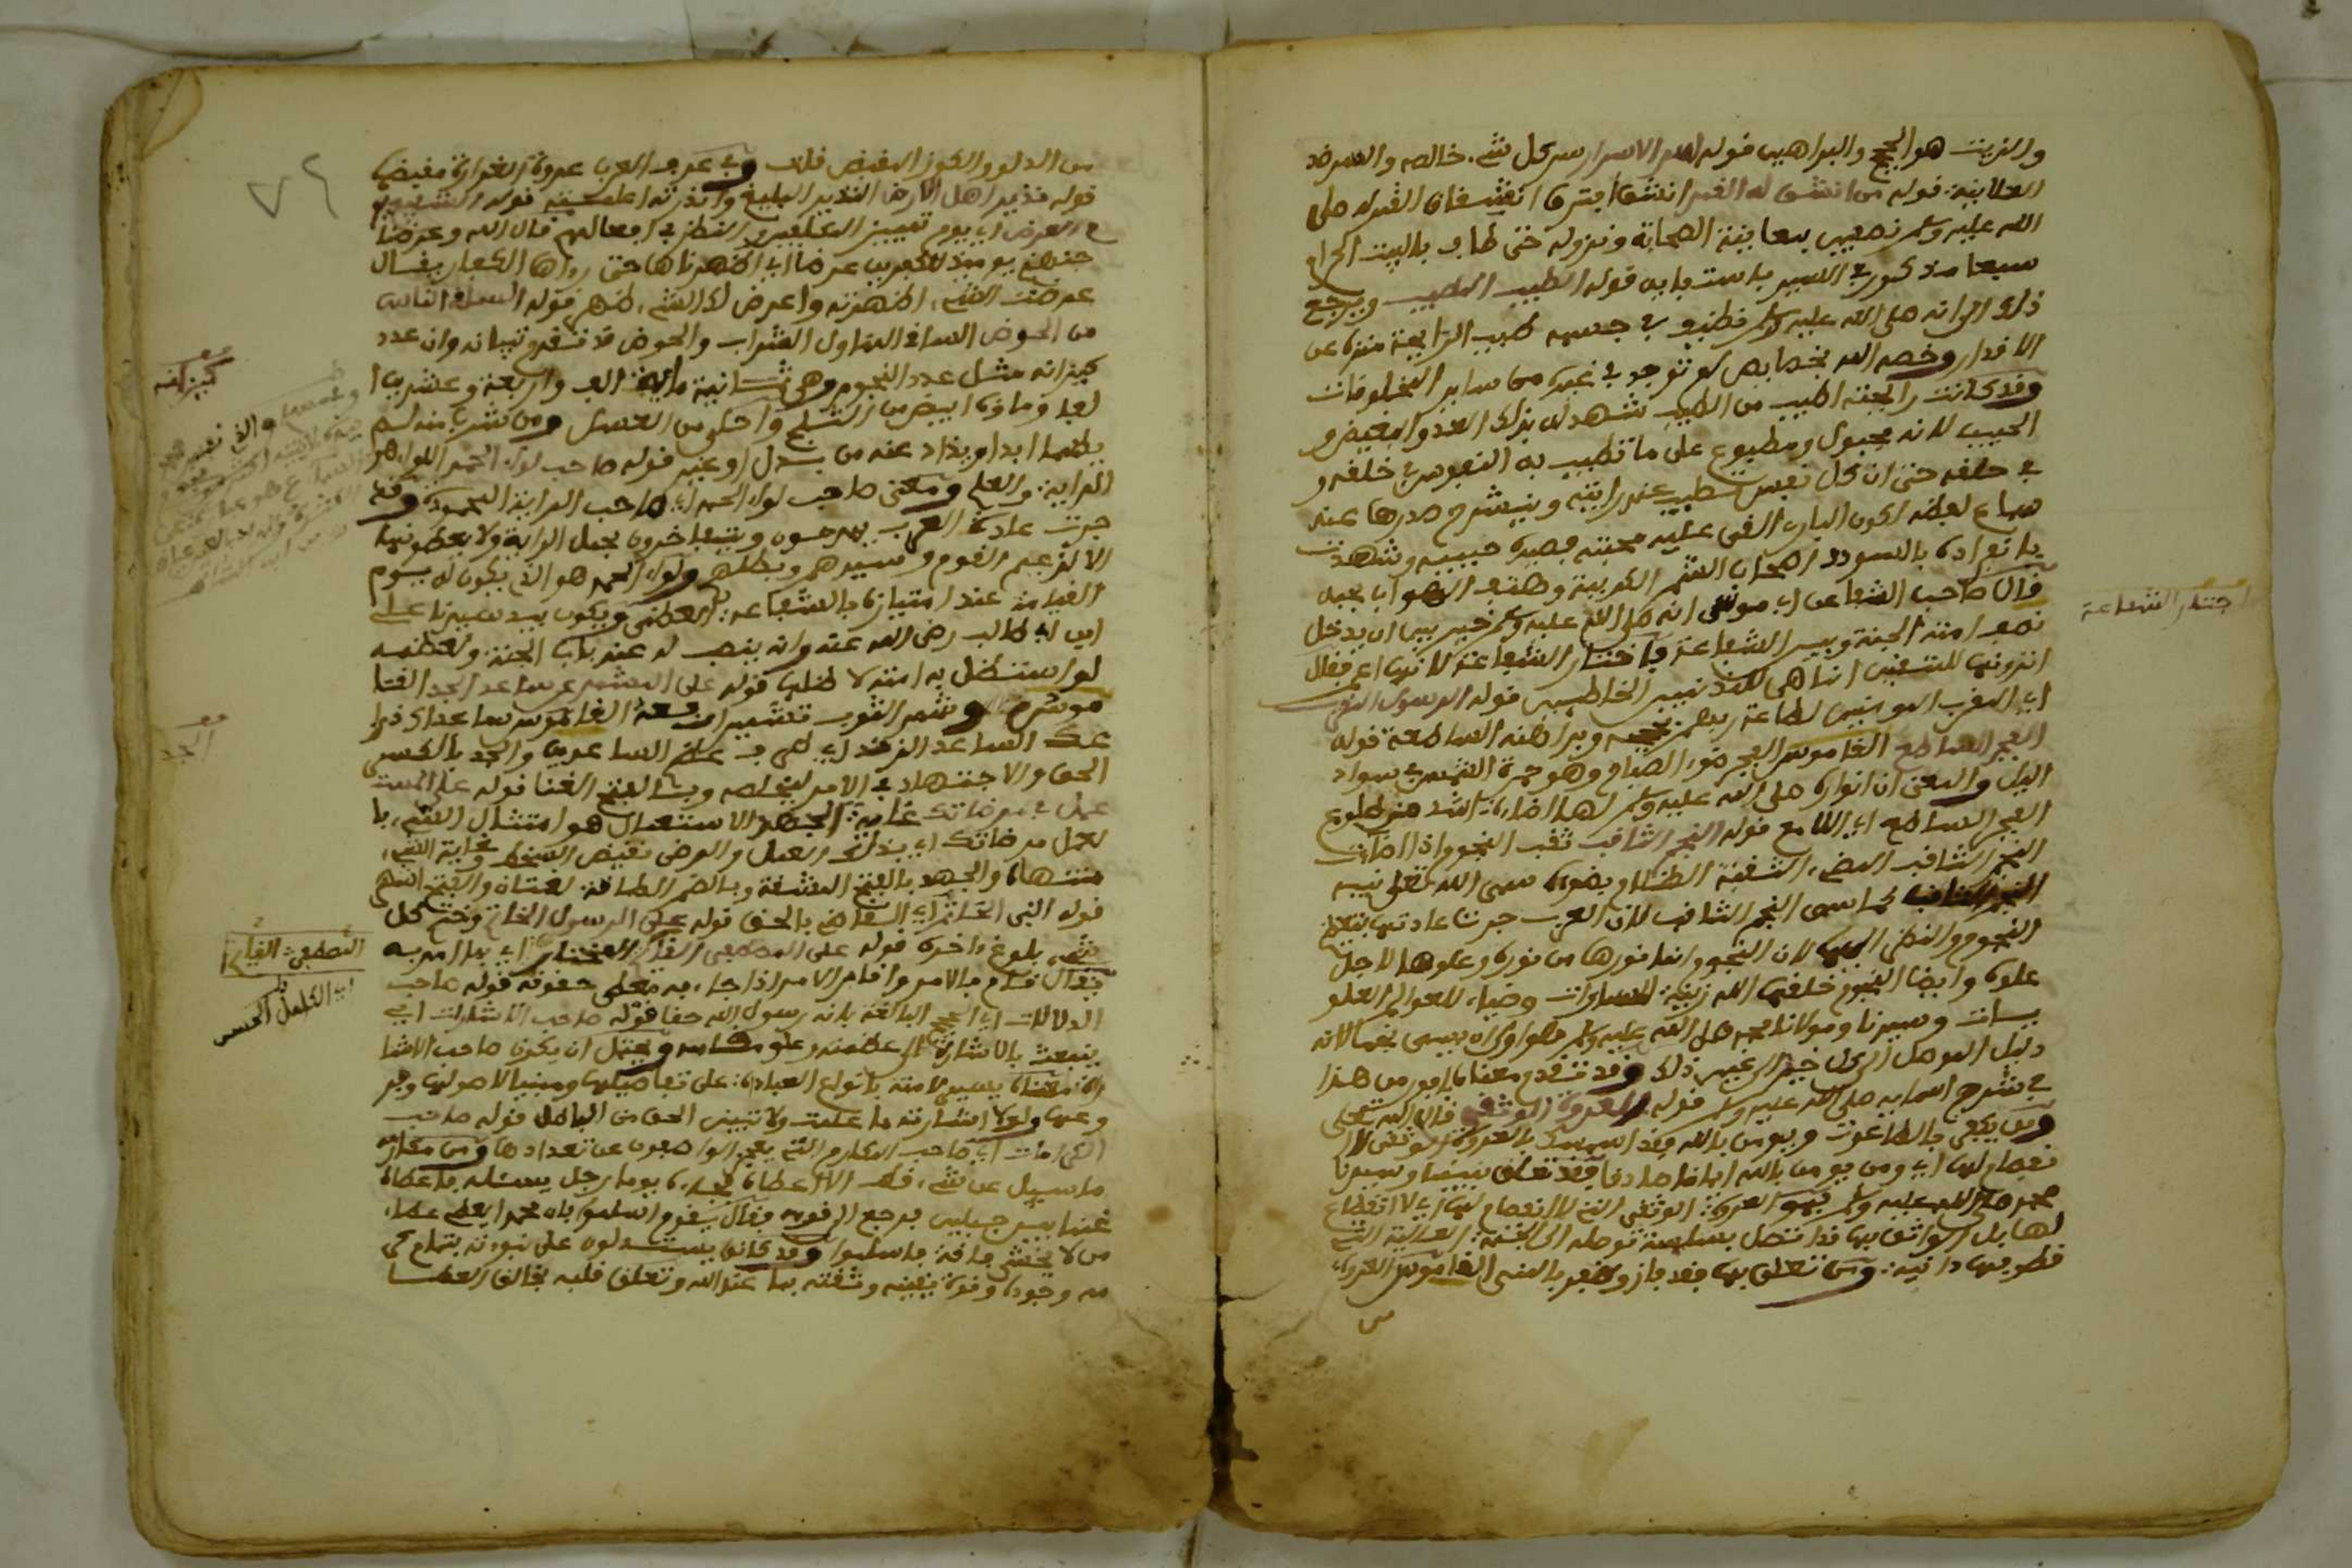 والزيت هو الحجج والبراهين قوله سر الاسرار سر كل شيء خالصه والسر ضد
العلانية قوله من انشق له القمر انشق افترق انشقاق القمر له صلى
الله عليه وسلم نصفين بمعاينة الصحابة ونزوله حتى طاف بالبيت الحرام
سبعا مذكور في السير قوله الطيب المطيب ويرجع
ذلك الى انه صلى الله عليه وسلم نظيف في جسمه طيب الرايحة منزه عن
الاقذار وخصه الله بخصايص لم توجد في غيره من ساير المخلوقات
وقد كانت رايحته اطيب من الطيب شهد له بذلك العدو البغيض و
الحبيب لانه مجبول ومطبوع على ما تطيب به النفوس في خلقه و
في خلقه حتى ان كل نفس تطيب عند رايته وينشرح صدرها عند
سماع لفظه لكون الباري القى عليه محبته فصيره حبيبه وشهدت
بانفراده بالسودد اصحاب الشيم العربية
قال صاحب الشفا عن ابي موسى انه صلى الله عليه وسلم خير بين ان يدخل
نصف امته الجنة وبين الشفاعة فاختار الشفاعة لانها اعم فقال
اترونها للمتقين انما هي للمذنبين الخاطيين قوله الرسول المقرب
اي المقرب المومنين لطاعة ربهم وبراهنه الساطعة قوله
الفجر الساطع القاموس الفجر ضوء الصباح وهو حمرة الشمس في سواد
اليل والمعنى ان انواره صلى الله عليه وسلم لها اضاءة اشد من طلوع
الفجر الساطع اي اللامع قوله النجم الثاقب ثقب النجم اذا اضاءت
النجم الثاقب المضيء الشقبة الظلام بضوئه سمى الله تعلى نبيه
النجم الثاقب كما سمى النجم الثاقب لان العرب جرت عادتها بتعظيم
النجوم والنظر اليها لان النجوم انما نورها من نوره وعلوها لاجل
علوه وايضا النجوم خلقها الله زينة للسماوات وضياء للعوالم العلو
يات وسيدنا ومولانا محمد صلى الله عليه وسلم هو اولى ان يسمى نجما لانه
دليل الموصل الى كل خير الى غير ذلك وقد تقدم معناه
في شرح اسمايه صلى الله عليه وسلم قوله العروة الوثقى قال الله تعلى
ومن يكفر بالطاغوت ويومن بالله فقد استمسك بالعروة الوثقى لا
نفصام لها اي ومن يومن بالله ايمانا صادقا فقد تعلق بنبينا وسيدنا
محمد صلى الله عليه وسلم فهو العروة الوثقى التي لا انفصام لها اي لا انقطاع
لها بل الواثق بها قد اتصل بسلسلة توصله الى الجنة العالية التي
قطوفها دانية ومن تعلق بها فقد فاز وظفر بالمنى القاموس العروة
من
اختار الشفاعة
٧٦
من الدلو والكوز المقبض قلت وفي عرف العرب عروة الغرارة مقبضها
قوله نذير اهل الارض النذير البليغ وانذرته اعلمته قوله الشفيع
يوم العرض اي يوم تمييز المكلفين والنظر في افعالهم قال الله وعرضنا
جهنم يومئذ للكافرين عرضا اي اظهرناها حتى رواها الكفار يقال
عرضت الشيء اظهرته واعرض لك الشيء ظهر قوله الساقي الناس
من الحوض الساقي المناول الشراب والحوض قد تقدم تبيانه وان عدد
كيزانه مثل عدد النجوم وهي ثمانية ماية الف واربعة وعشرين ا
لفا وماؤه ابيض من الثلج واحلى من العسل ومن شرب منه لم
يظما ابدا ويذاد عنه من بدل او غير قوله صاحب لواء الحمد اللواء هو
الراية والعلم ومعنى صاحب لواء الحمد اي صاحب الراية المحمودة وقد
جرت عادة العرب يمدحون ويتفاخرون بحمل الراية ولا يعطونها
الا لزعيم القوم وسيدهم وبطلهم ولواء الحمد هو الذي يكون له يوم
القيامة عند امتيازه بالشفاعة العظمى ويكون بيد سيدنا علي
ابن ابي طالب رضي الله عنه وانه ينصب له عند باب الجنة ولعظمه
لو استظل به امته لاظلها قوله على المشمر عن ساعد الجد القا
موس وشمر الثوب تشميرا رفعه القاموس ساعداك ذرا
عاك الساعد الزند اي كمى في علم الساعدين والجد بالكسر
الحق والاجتهاد في الامر وبالفتح الغنا قوله على المستـ
عمل في مرضاتك غاية الجهد الاستعمال هو امتثال الشيء با
لعمل مرضاتك اي بذلك العمل والرضى نقيض السخط وغاية الشيء
منتهاه والجهد بالفتح المشقة وبالضم الطاقة
قوله النبي الخاتم قوله على الرسول الخاتم وختم كل
شيء بلوغ ءاخره قوله على المصطفى القائم المختار اي بما امر به
يقال قام بالامر واقام الامر اذا جاء به معطى حقوقه قوله صاحب
الدلالات اي الحجج البالغة بانه رسول الله حقا قوله صاحب الاشارات اي
ينعت بالاشارة الى عظمته وعلو مقامه ويحتمل ان يكون صاحب الاشا
رة معناه يسير لامته بانواع العبادة على تفاصيلها ومبينا لاصولها وفر
وعها ولولا اشارته ما علمت ولا تبين الحق من الباطل قوله صاحب
الكرامات اي صاحب المكارم التي يعجز الواصفون عن تعدادها ومن مكارمه
ما سيل عن شيء قط الا اعطاه فجاءه يوما رجل يسئله فاعطاه
غنما بين جبلين فرجع الى قومه فقال يقوم اسلموا فان محمدا يعطي عطاء
من لا يخشى فاقة فاسلموا وقد كانوا يستدلون على نبوته بتمام كر
مه وجوده وقوة يقينه وثقته بما عند الله وتعلق قلبه بخالق العطا
كيزانه
الجد
المصطفى القائم
اي الكامل الحسن